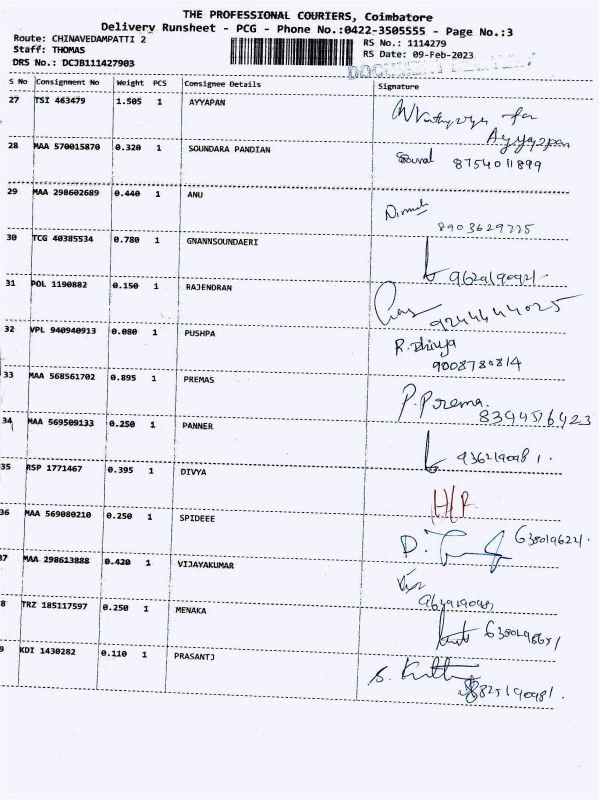 THE PROFESSIONAL COURIERS, Coimbatore
Delivery Runsheet - PCG - Phone No.:0422-3505555 - Page No.:3
Route: CHINAVEDAMPATTI 2
Staff: THOMAS
DRS No.: DCJB111427903
RS No.: 1114279
RS Date: 09-Feb-2023
S No Consignment No Weight PCS Consignee Details Signature
27 TSI 463479 1.505 1 AYYAPAN for
Ayyappan
28 MAA 570015870 0.320 1 SOUNDARA PANDIAN 8754011899
29 MAA 298602689 0.440 1 ANU
8903629775
30 TCG 40385534 0.780 1 GNANNSOUNDAERI
31 POL 1190882 0.150 1 RAJENDRAN
9244444025
32 VPL 940940913 0.080 1 PUSHPA R. Dhivya
9008780814
33 MAA 568561702 0.895 1 PREMAS P. Prema.
8344576423
34 MAA 569509133 0.250 1 PANNER
35 RSP 1771467 0.395 1 DIVYA H/R
36 MAA 569080210 0.250 1 SPIDEEE
37 MAA 298613888 0.420 1 VIJAYAKUMAR
8 TRZ 185117597 0.250 1 MENAKA
9 KDI 1430282 0.110 1 PRASANTJ